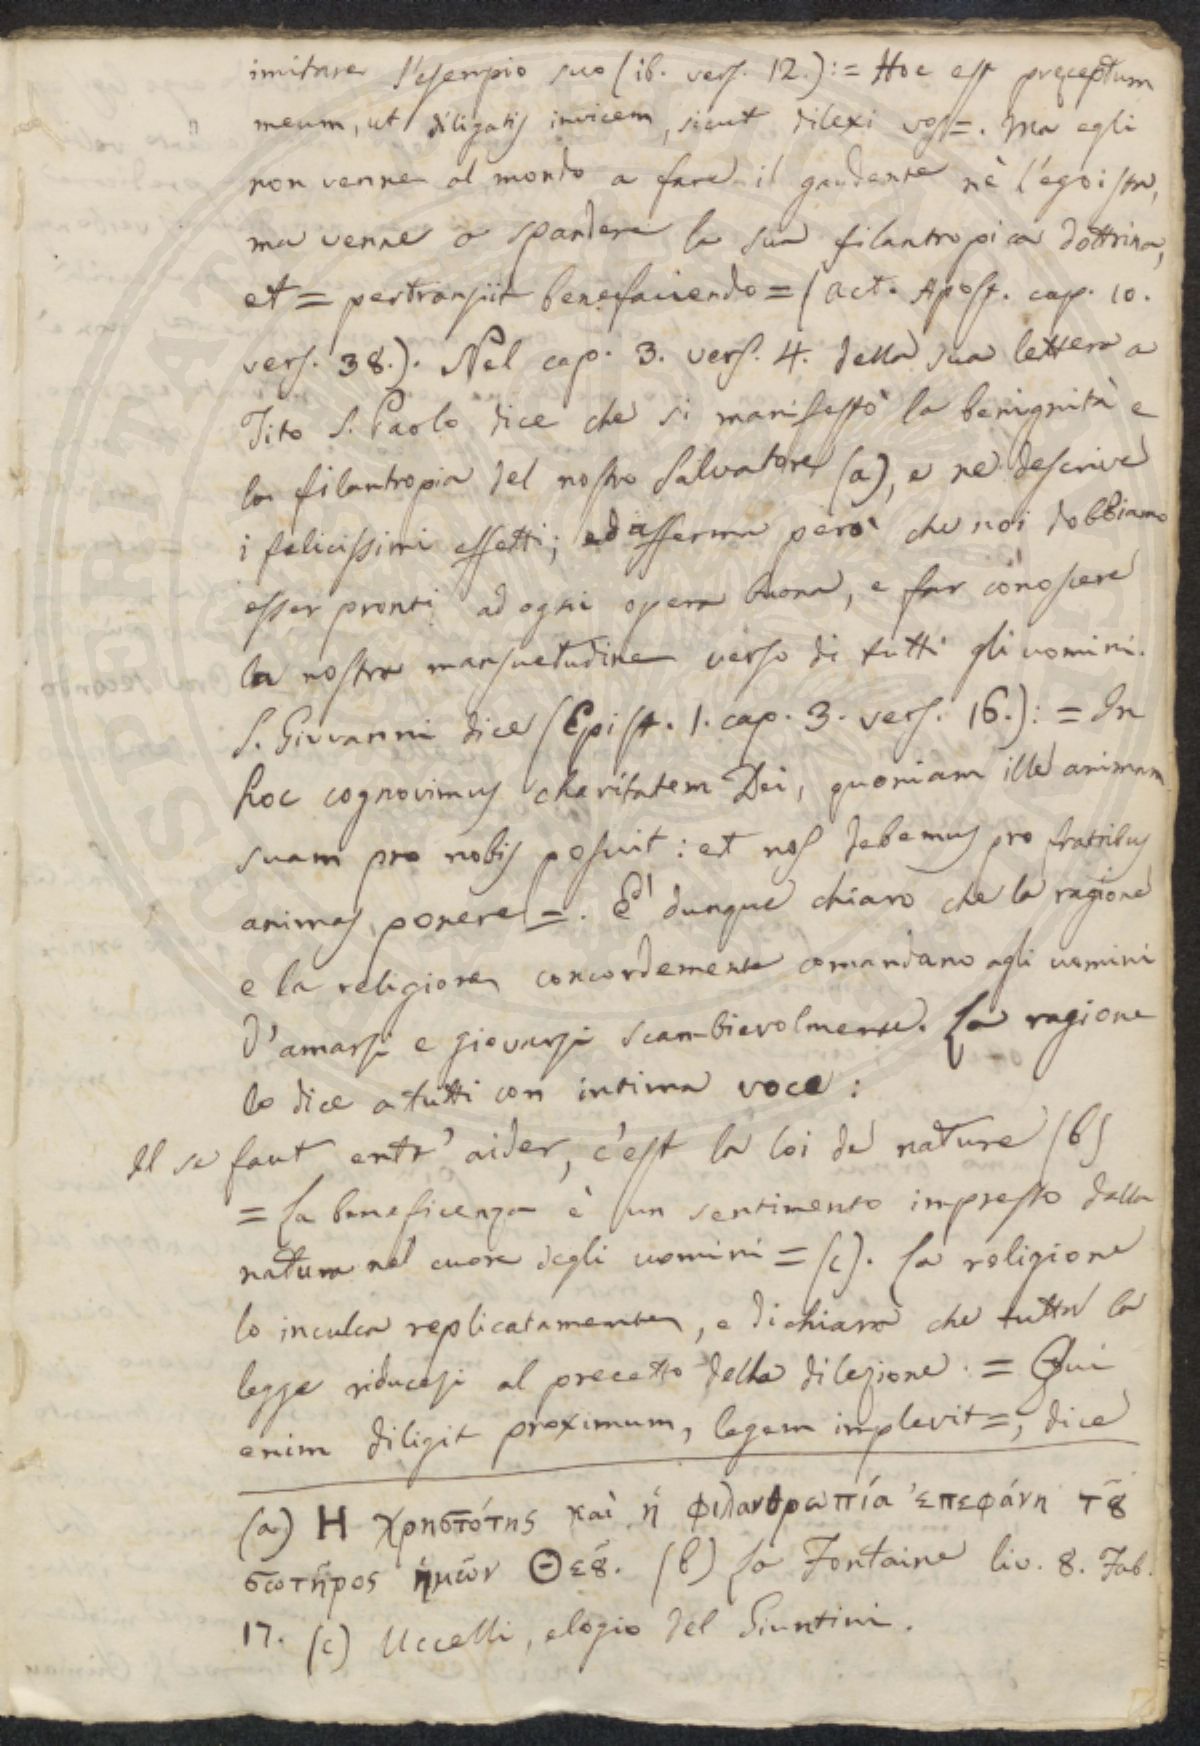 imitare l'esempio suo (ib. vers. 12.): = Hoc est preceptum
meum, ut diligatis invicem, sicut dilexi vos =. Ma egli
non venne al mondo a fare il gaudente nè l'egoista,
ma venne a spandere la sua filantropica dottrina,
et = pertransiit benefaciendo = (act. Apost. cap. 10.
vers. 38.). Nel cap. 3. vers. 4. della sua lettera a
Tito S. Paolo dice che si manifestò la benignità e
la filantropia del nostro Salvatore (a), e ne descrive
i felicissimi effetti; ed afferma però che noi dobbiamo
esser pronti ad ogni opera buona, e far conoscere
la nostra mansuetudine verso di tutti gli uomini.
S. Giovanni dice (Epist. 1. cap. 3. vers. 16.): = In
hoc cognovimus charitatem Dei, quoniam ille animam
suam pro nobis posuit: et nos debemus pro fratribus
animas ponere =. E' dunque chiaro che la ragione
e la religione concordemente comandano agli uomini
d'amarsi e giovarsi scambievolmente. La ragione
lo dice a tutti con intima voce:
Il se faut entr'aider, c'est la loi de nature (b)
= La beneficenza è un sentimento impresso dalla
natura nel cuore degli uomini = (c). La religione
lo inculca replicatamente, e dichiara che tutta la
legge riducesi al precetto della dilezione: = Qui
enim diligit proximum, legem implevit =, dice
(a) Η χρηστότης καὶ ἡ φιλανθρωπία ἐπεφάνη τȣ͂
σωτῆρος ἡμῶν Θεȣ͂. (b) La Fontaine liv. 8. Fab.
17. (c) Uccelli, elogio del Giuntini.